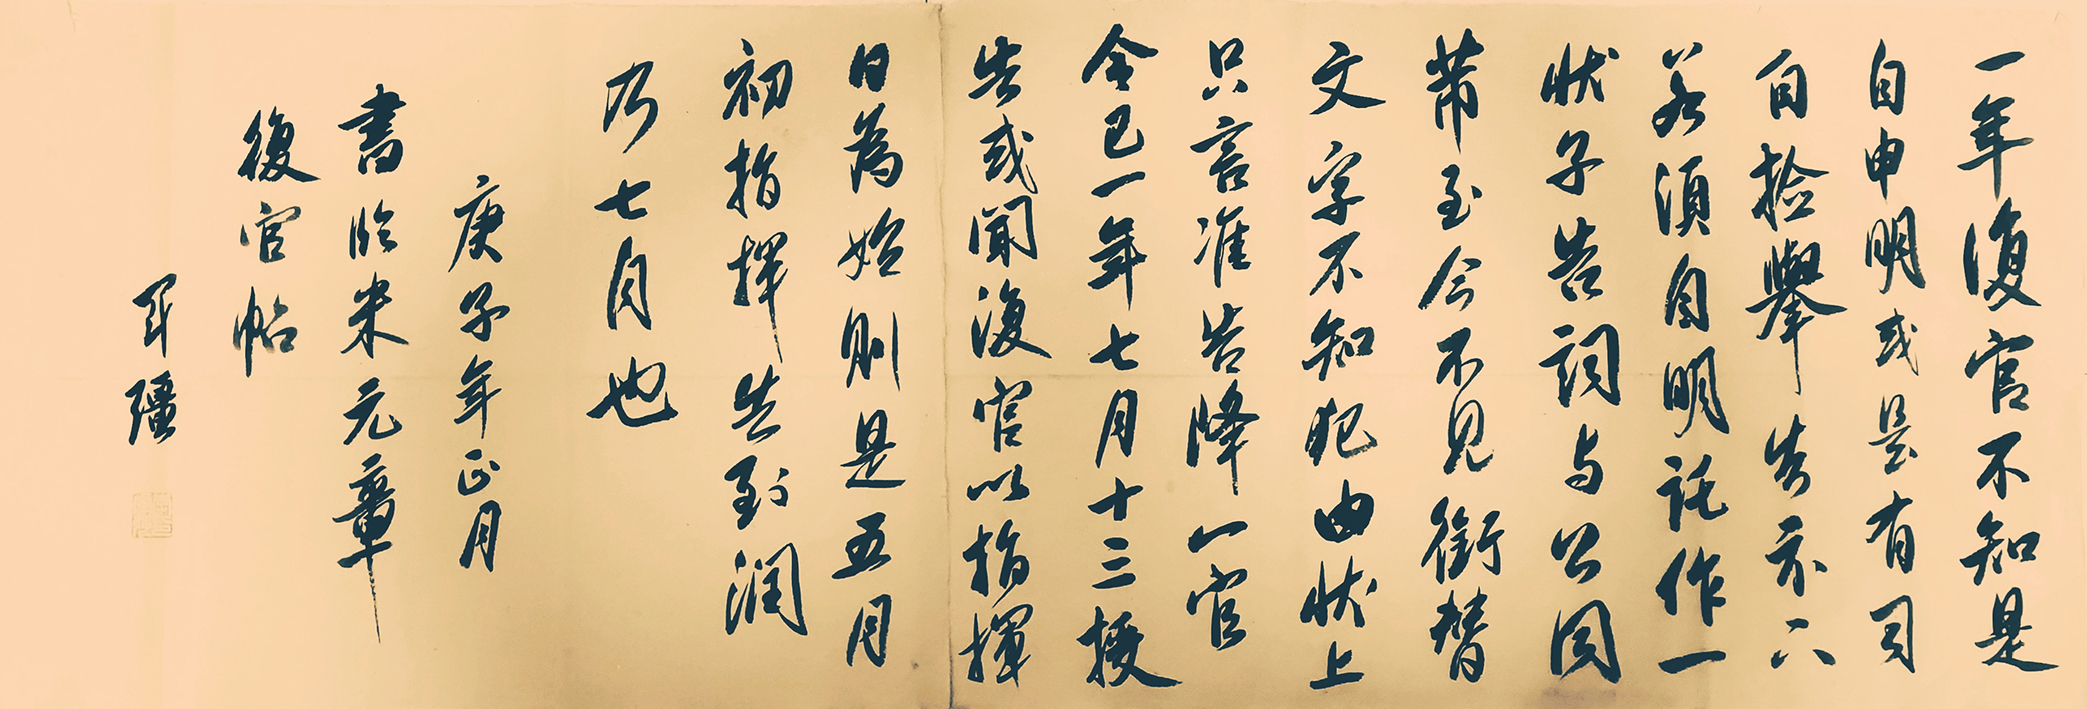 一年復官不知是
自申明或是有司
自捡舉告示下
若須自明託作一
状子告詞与公同
带至今不見銜替
文字不知犯由状上
只言准告降一官
今已一年七月十三授
告或聞復官以指揮
日為始則是五月
初指揮告到潤
乃七月也
庚子年正月
書临米元章
復官帖
疆